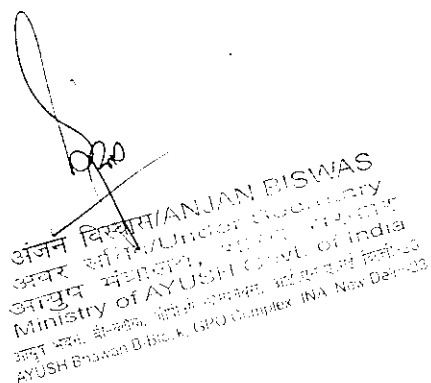 अंजन विस्वास/ANJAN BISWAS
अवर सचिव/Under Secretary
आयुष मंत्रालय, भारत सरकार
Ministry of AYUSH Govt. of India
आयुष भवन, बी-ब्लॉक, नई दिल्ली-23
AYUSH Bhawan B-Block, GPO Complex INA, New Delhi-23